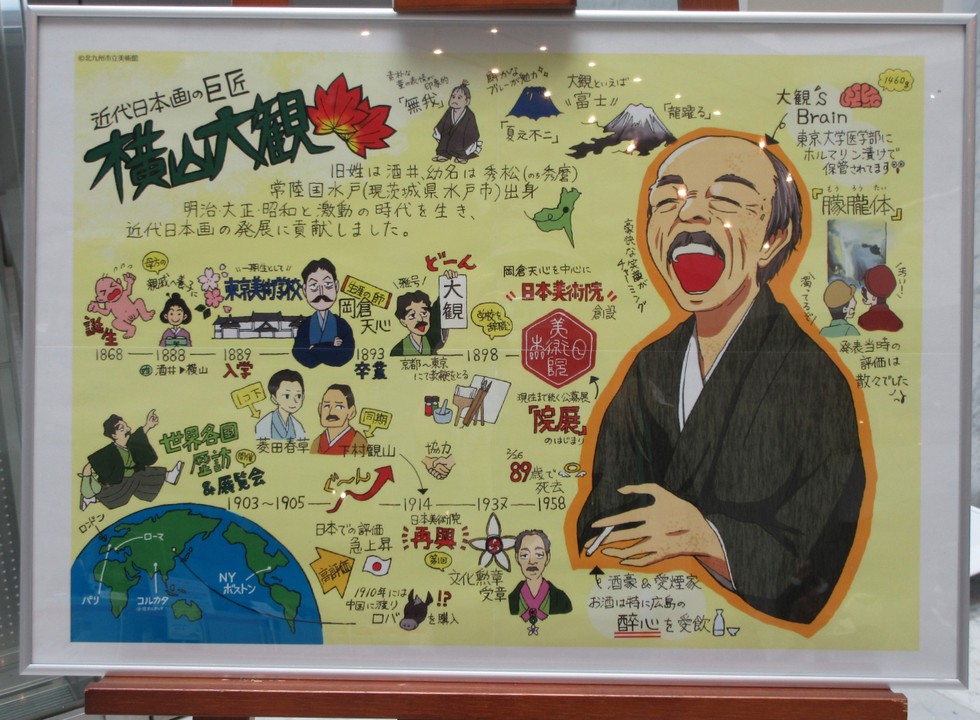 ©北九州市立美術館
近代日本画の巨匠
横山大観
「無我」
「夏之不二」
大観といえば
"富士"
「龍躍る」
1460g
大観's
Brain
東京大学医学部に
ホルマリン漬けで
保管されてます
旧姓は酒井、幼名は秀松(のち秀麿)
常陸国水戸(現茨城県水戸市)出身
明治・大正・昭和と激動の時代を生き、
近代日本画の発展に貢献しました。
もうろうたい
『朦朧体』
発表当時の
評価は
散々でした
豪快な笑顔が
チャーミング
母方の
親戚の養子に
誕生
一期生として
東京美術学校
生涯の師
岡倉
天心
雅号!
どーん
大観
学校を
辞職
岡倉天心を中心に
日本美術院
創設
1868
1888
1889
1893
1898
酒井▶横山
入学
卒業
京都〜東京
にて教鞭をとる
現在まで続く公募展
「院展」
のはじまり
1コ下
菱田春草
同期
下村観山
協力
世界各国
歴訪
&展覧会
開催
ぐ〜ん
2/26
89歳で
死去
1903〜1905
1914
1937
1958
ロンドン
ローマ
パリ
コルカタ
NY
ボストン
日本での評価
急上昇
高評価
日本美術院
再興
第1回
文化勲章
受章
1910年には
中国に渡り
ロバ
を購入
!?
酒豪&愛煙家
お酒は特に広島の
醉心を愛飲